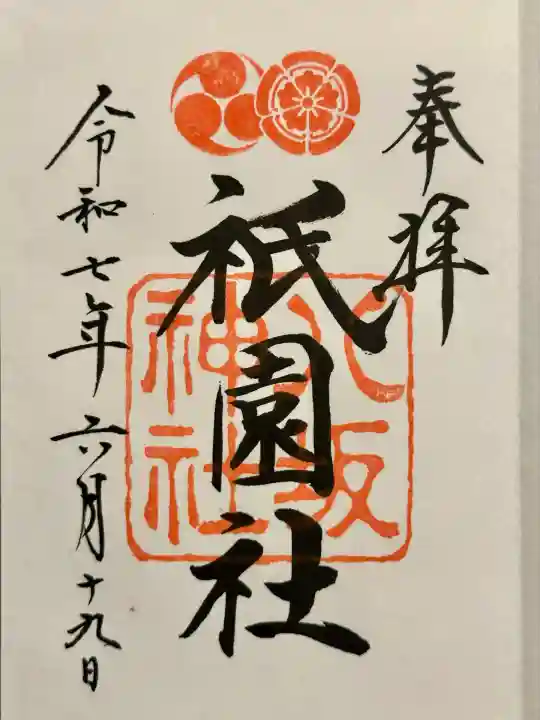 奉拝
八坂
神社
祇園社
令和七年六月十九日